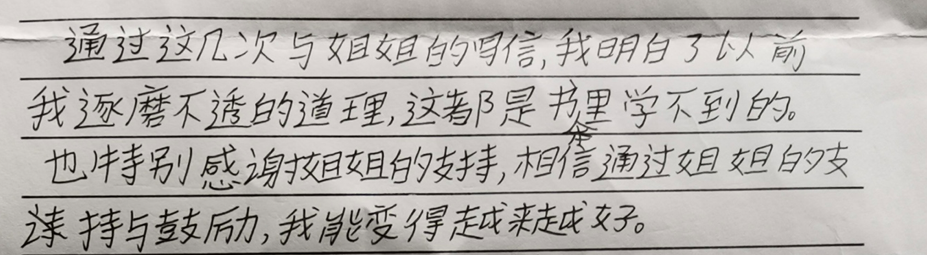 通过这几次与姐姐的写信,我明白了以前
我逐磨不透的道理,这都是书里学不到的。
也特别感谢姐姐的支持,相信通过姐姐的支
持与鼓励,我能变得越来越好。